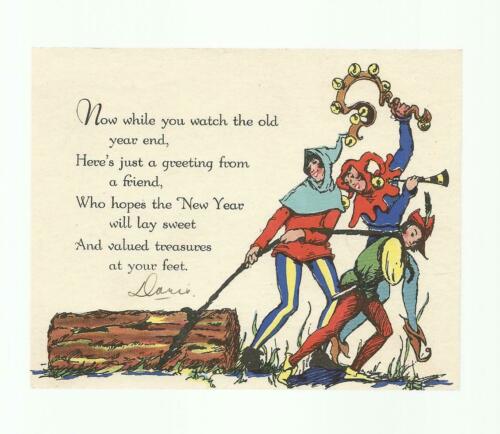 Now while you watch the old
year end,
Here's just a greeting from
a friend,
Who hopes the New Year
will lay sweet
And valued treasures
at your feet.
Doris.